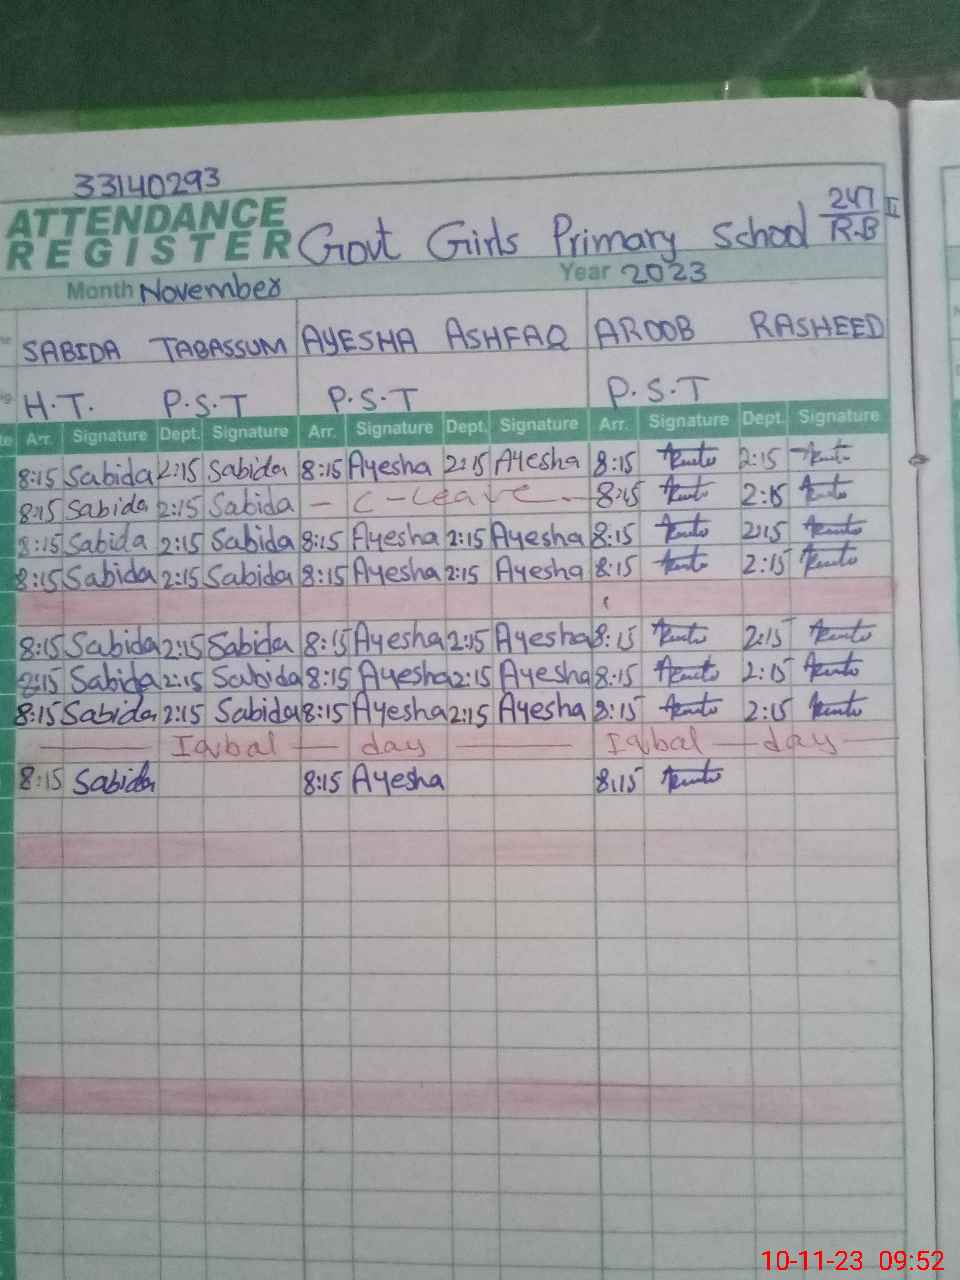 33140293
ATTENDANCE REGISTER Govt Girls Primary School 247/R.B II
Month November Year 2023
SABIDA TABASSUM AYESHA ASHFAQ AROOB RASHEED
H.T. P.S.T P.S.T P.S.T
Arr. Signature Dept. Signature Arr. Signature Dept. Signature Arr. Signature Dept. Signature
8:15 Sabida 2:15 Sabida 8:15 Ayesha 2:15 Ayesha 8:15 2:15
8:15 Sabida 2:15 Sabida - C-Leave. 8:15 2:15
8:15 Sabida 2:15 Sabida 8:15 Ayesha 2:15 Ayesha 8:15 2:15
8:15 Sabida 2:15 Sabida 8:15 Ayesha 2:15 Ayesha 8:15 2:15
8:15 Sabida 2:15 Sabida 8:15 Ayesha 2:15 Ayesha 8:15 2:15
8:15 Sabida 2:15 Sabida 8:15 Ayesha 2:15 Ayesha 8:15 2:15
8:15 Sabida 2:15 Sabida 8:15 Ayesha 2:15 Ayesha 8:15 2:15
— Iqbal — day — Iqbal — day —
8:15 Sabida 8:15 Ayesha 8:15
10-11-23 09:52